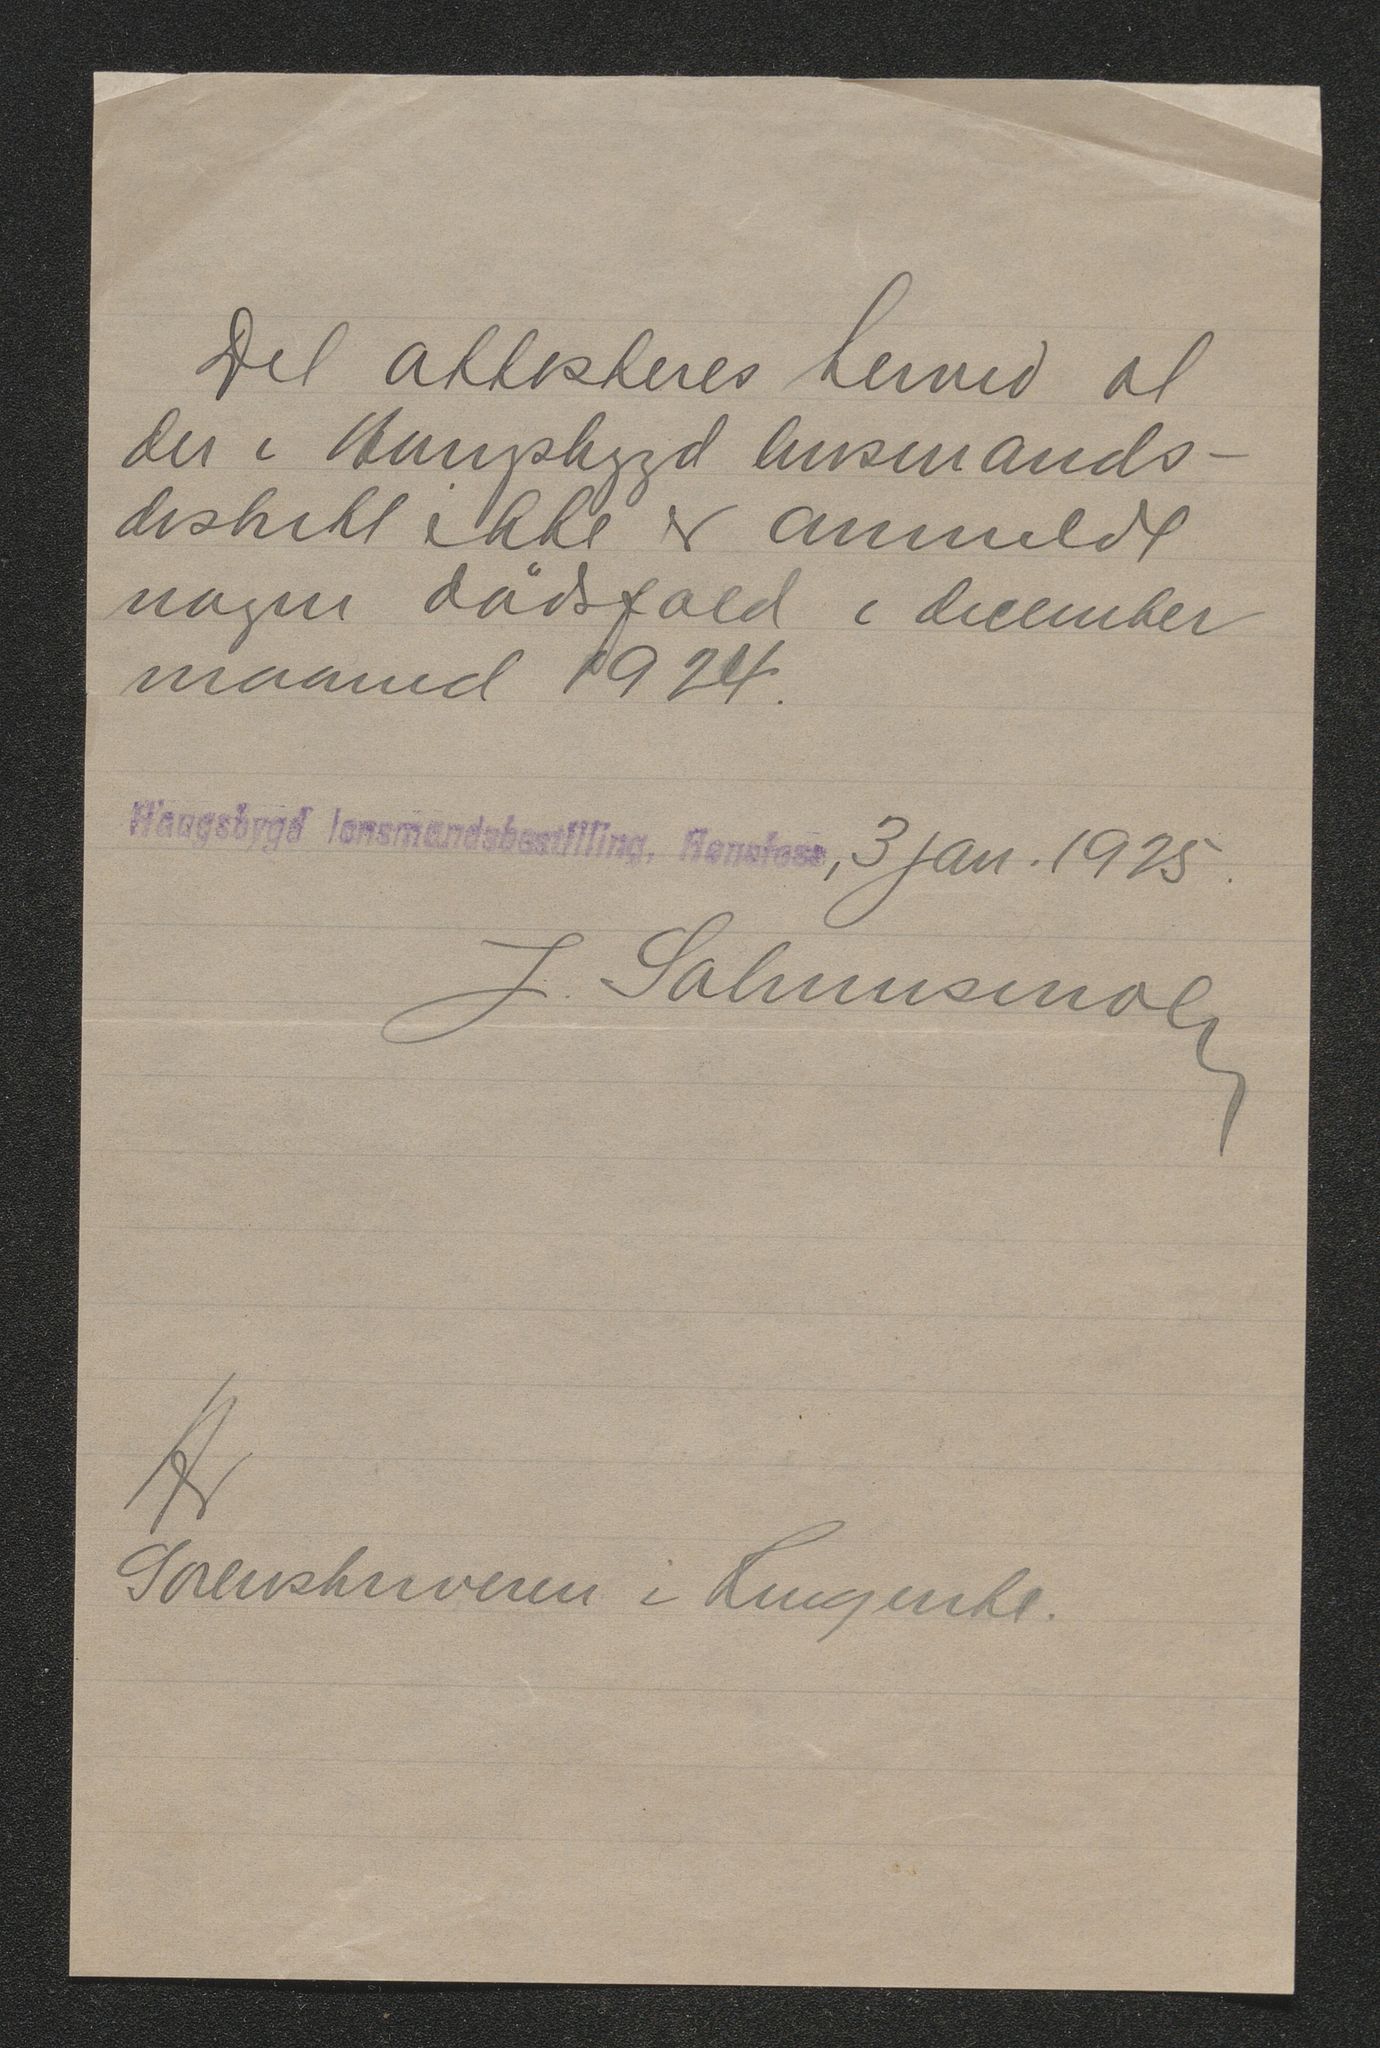 Det attesteres herved at
der i Haugsbygd lensmands-
distrikt ikke er anmeldt
nogen dödsfald i december
maaned 1924.
Haugsbygd lensmandsbestilling, Hønefoss, 3 jan. 1925.
J.
Hr
Sorenskriveren i Ringerike.